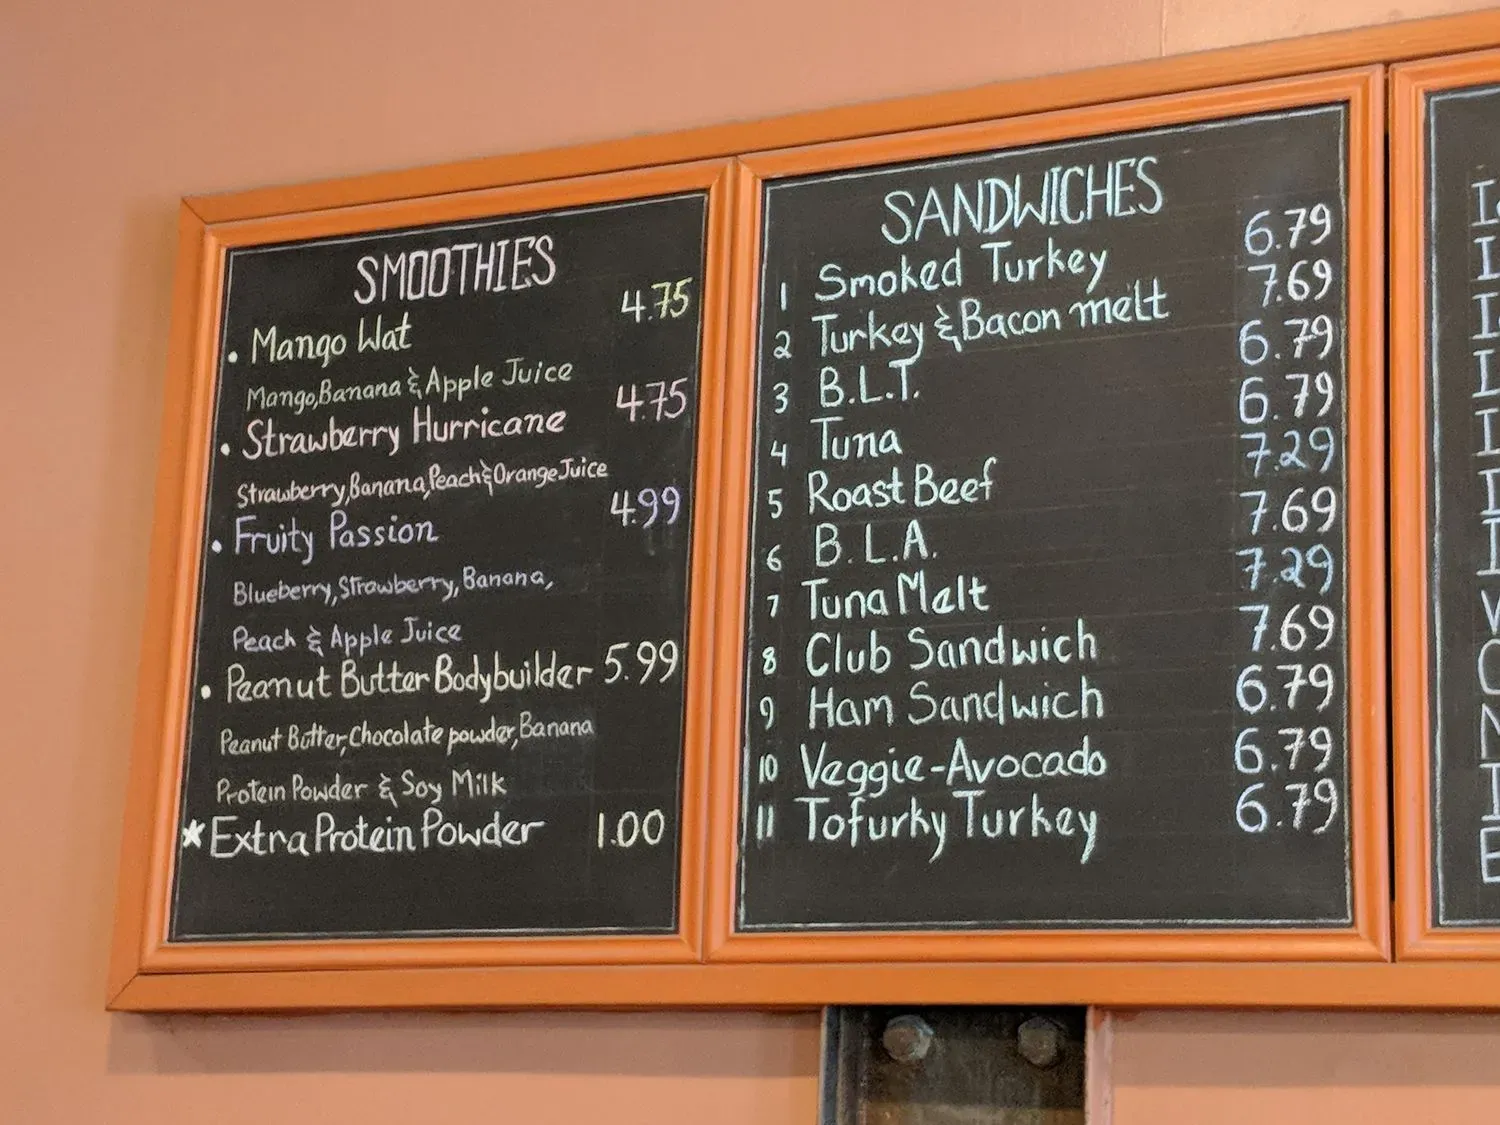 SMOOTHIES
• Mango Wat 4.75
Mango, Banana & Apple Juice
• Strawberry Hurricane 4.75
Strawberry, Banana, Peach & Orange Juice
• Fruity Passion 4.99
Blueberry, Strawberry, Banana,
Peach & Apple Juice
• Peanut Butter Bodybuilder 5.99
Peanut Butter, Chocolate powder, Banana
Protein Powder & Soy Milk
★ Extra Protein Powder 1.00
SANDWICHES
1 Smoked Turkey 6.79
2 Turkey & Bacon melt 7.69
3 B.L.T. 6.79
4 Tuna 6.79
5 Roast Beef 7.29
6 B.L.A. 7.69
7 Tuna Melt 7.29
8 Club Sandwich 7.69
9 Ham Sandwich 6.79
10 Veggie-Avocado 6.79
11 Tofurky Turkey 6.79